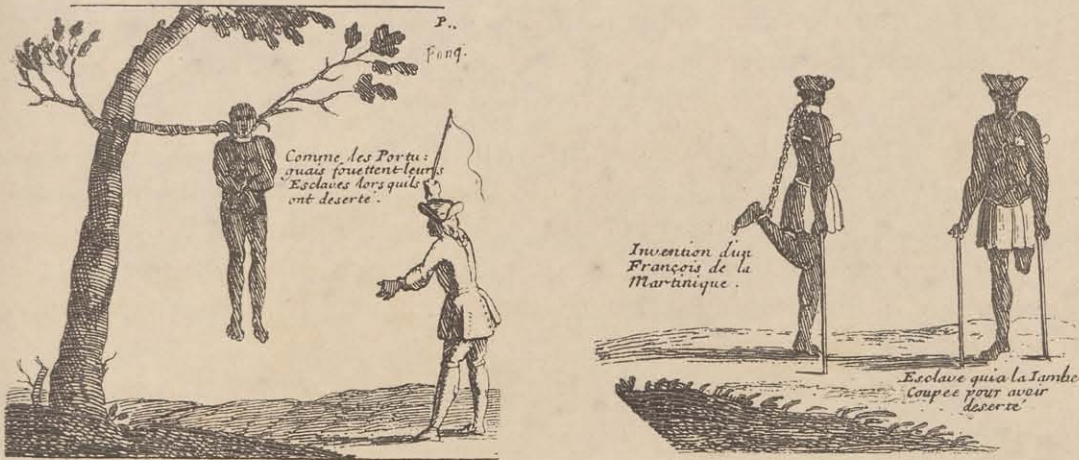 P..
Comme des Portu:
guais fouettent leurs
Esclaves lors quils
ont deserté.
Invention d'un
François de la
Martinique.
Esclave qui a la Iambe
Coupée pour avoir
deserté